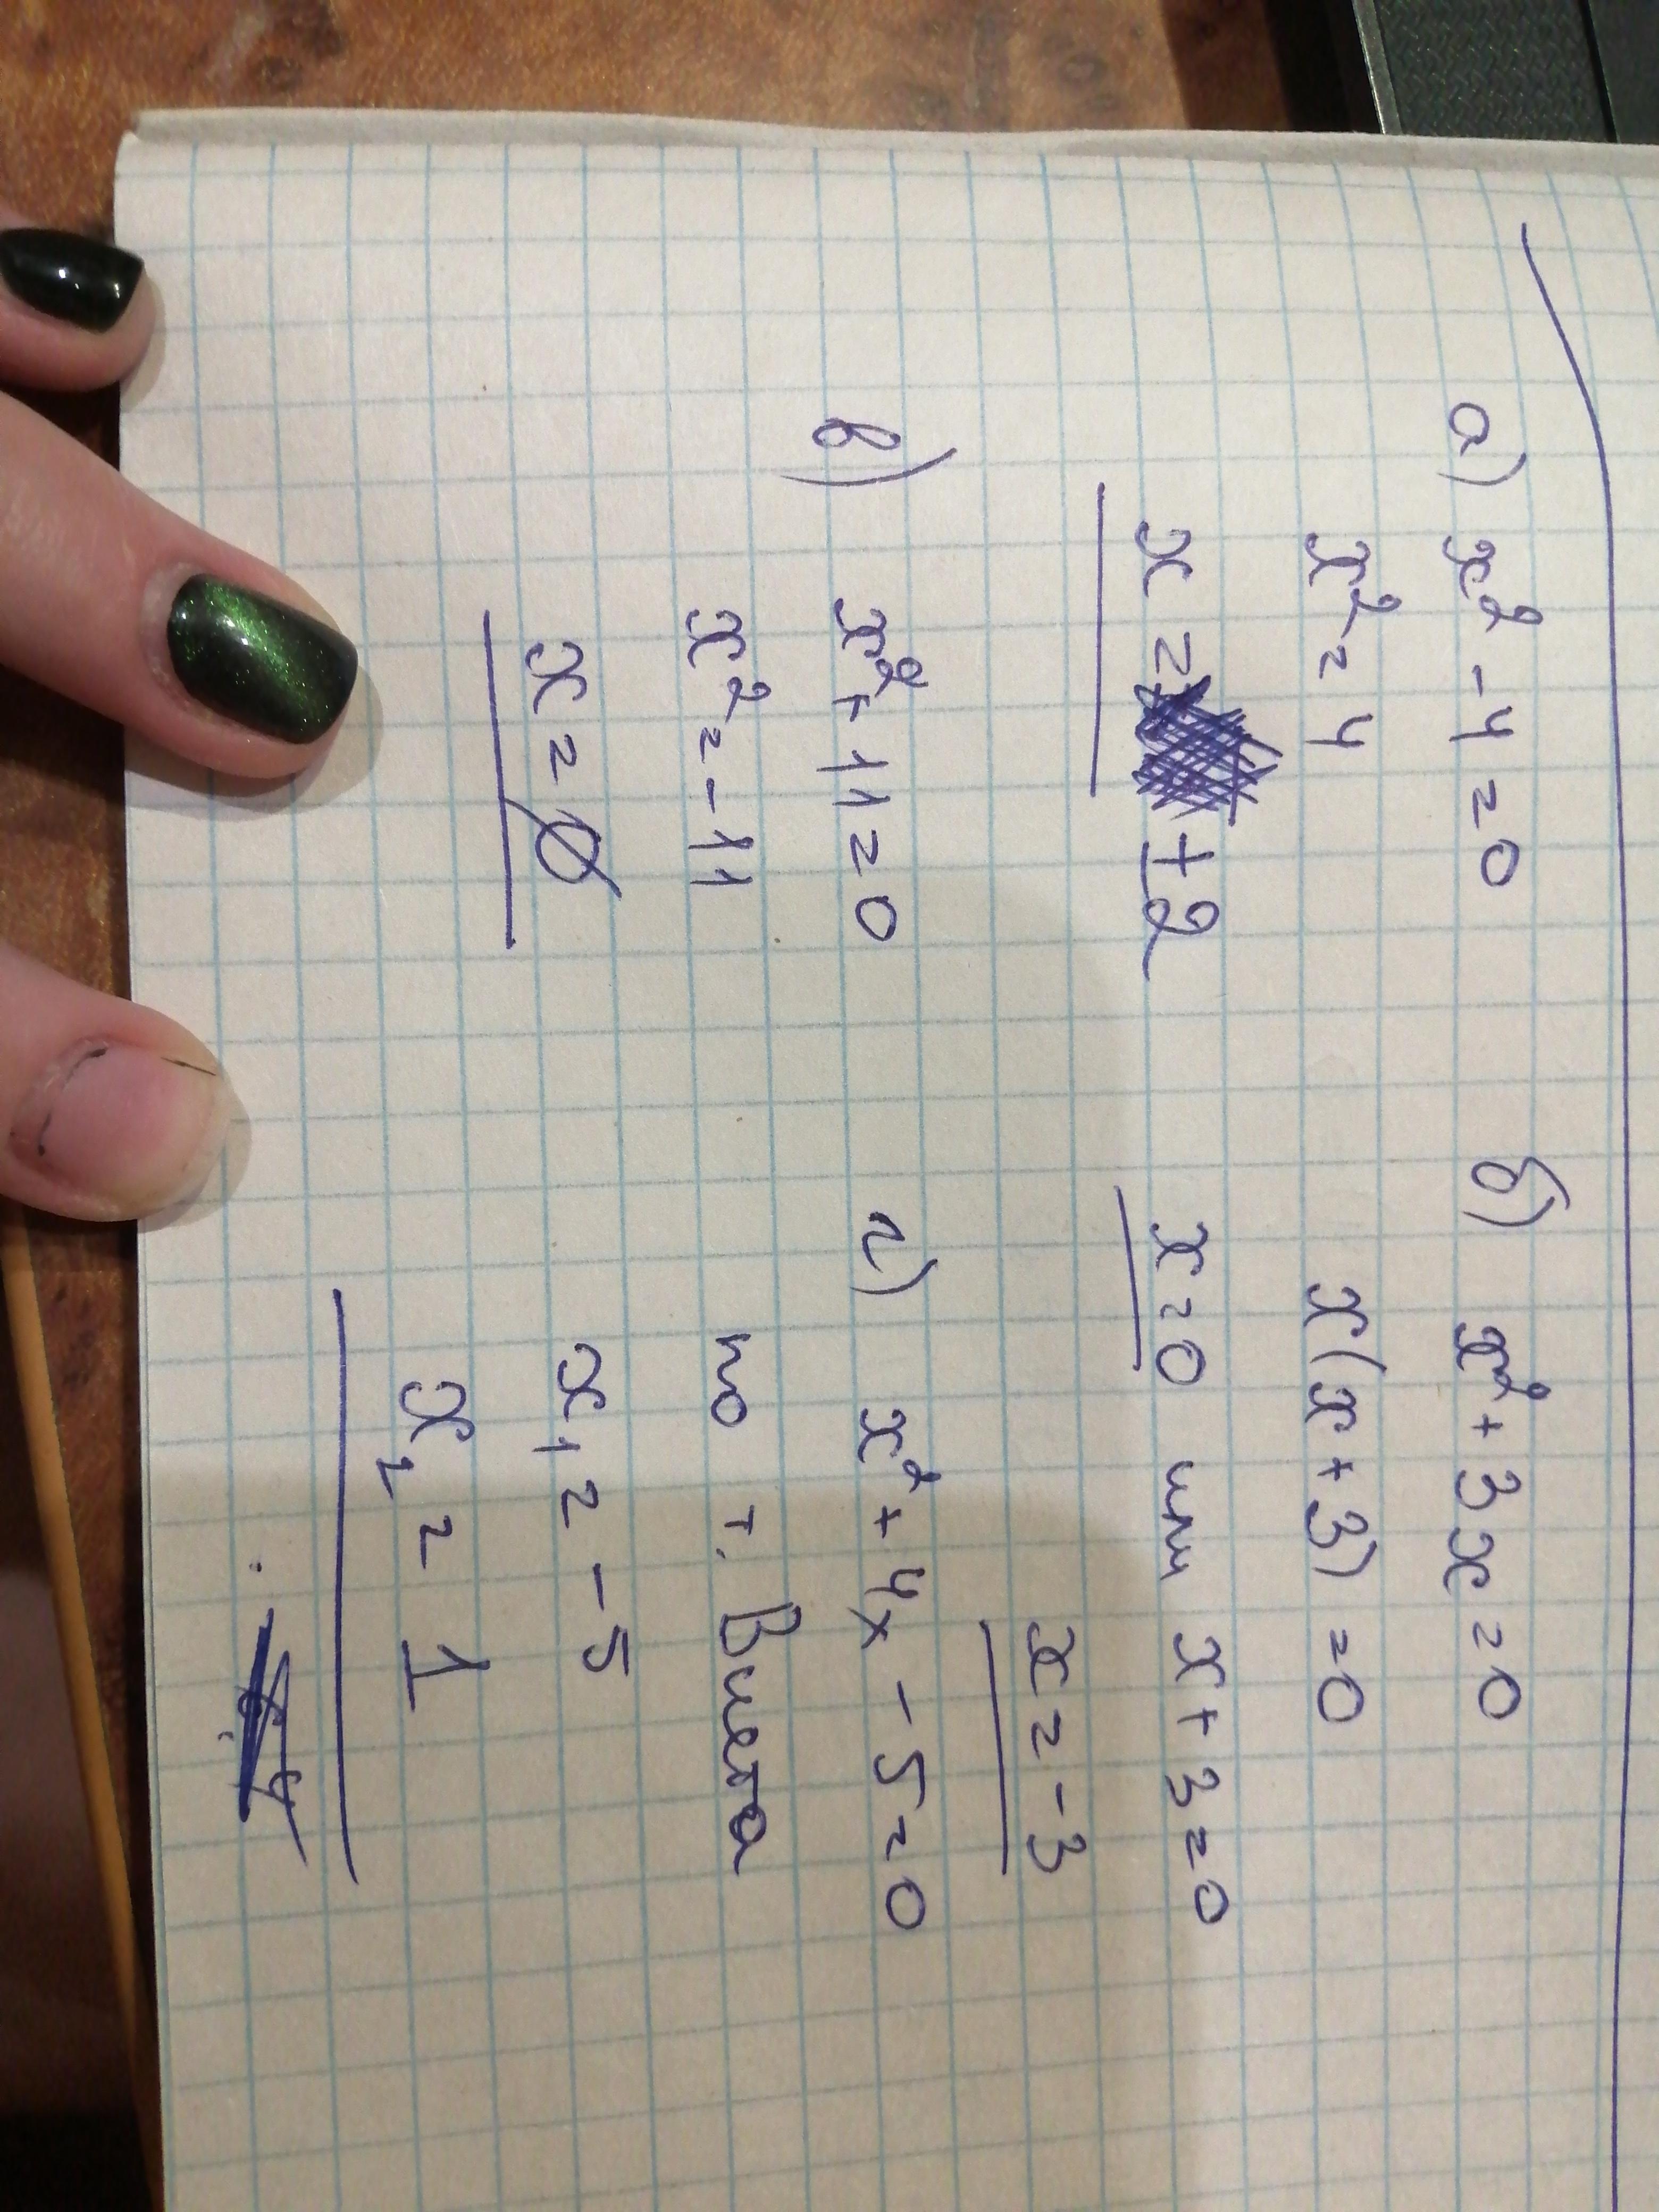 а) x² - 4 = 0
x² = 4
x = ±2
б) x² + 3x = 0
x(x + 3) = 0
x = 0 или x + 3 = 0
x = -3
в) x² + 11 = 0
x² = -11
x = ∅
г) x² + 4x - 5 = 0
по т. Виета
x₁ = -5
x₂ = 1